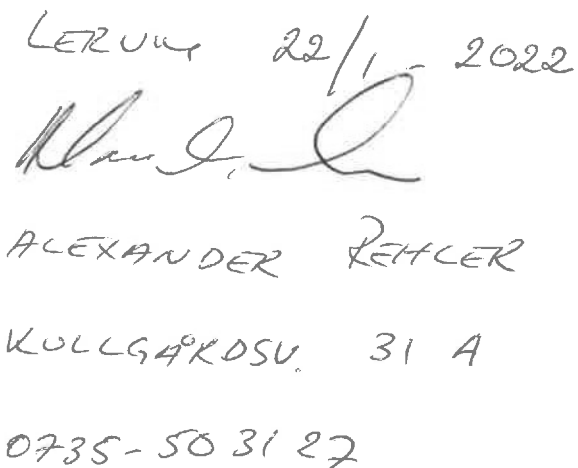 LERUM 22/1 - 2022
ALEXANDER REHLER
KULLGÅRDSV. 31 A
0735-50 31 27